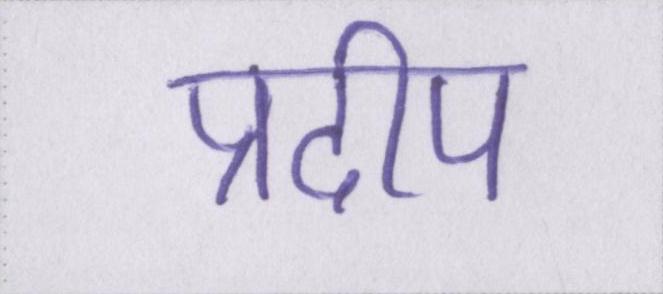 प्रदीप